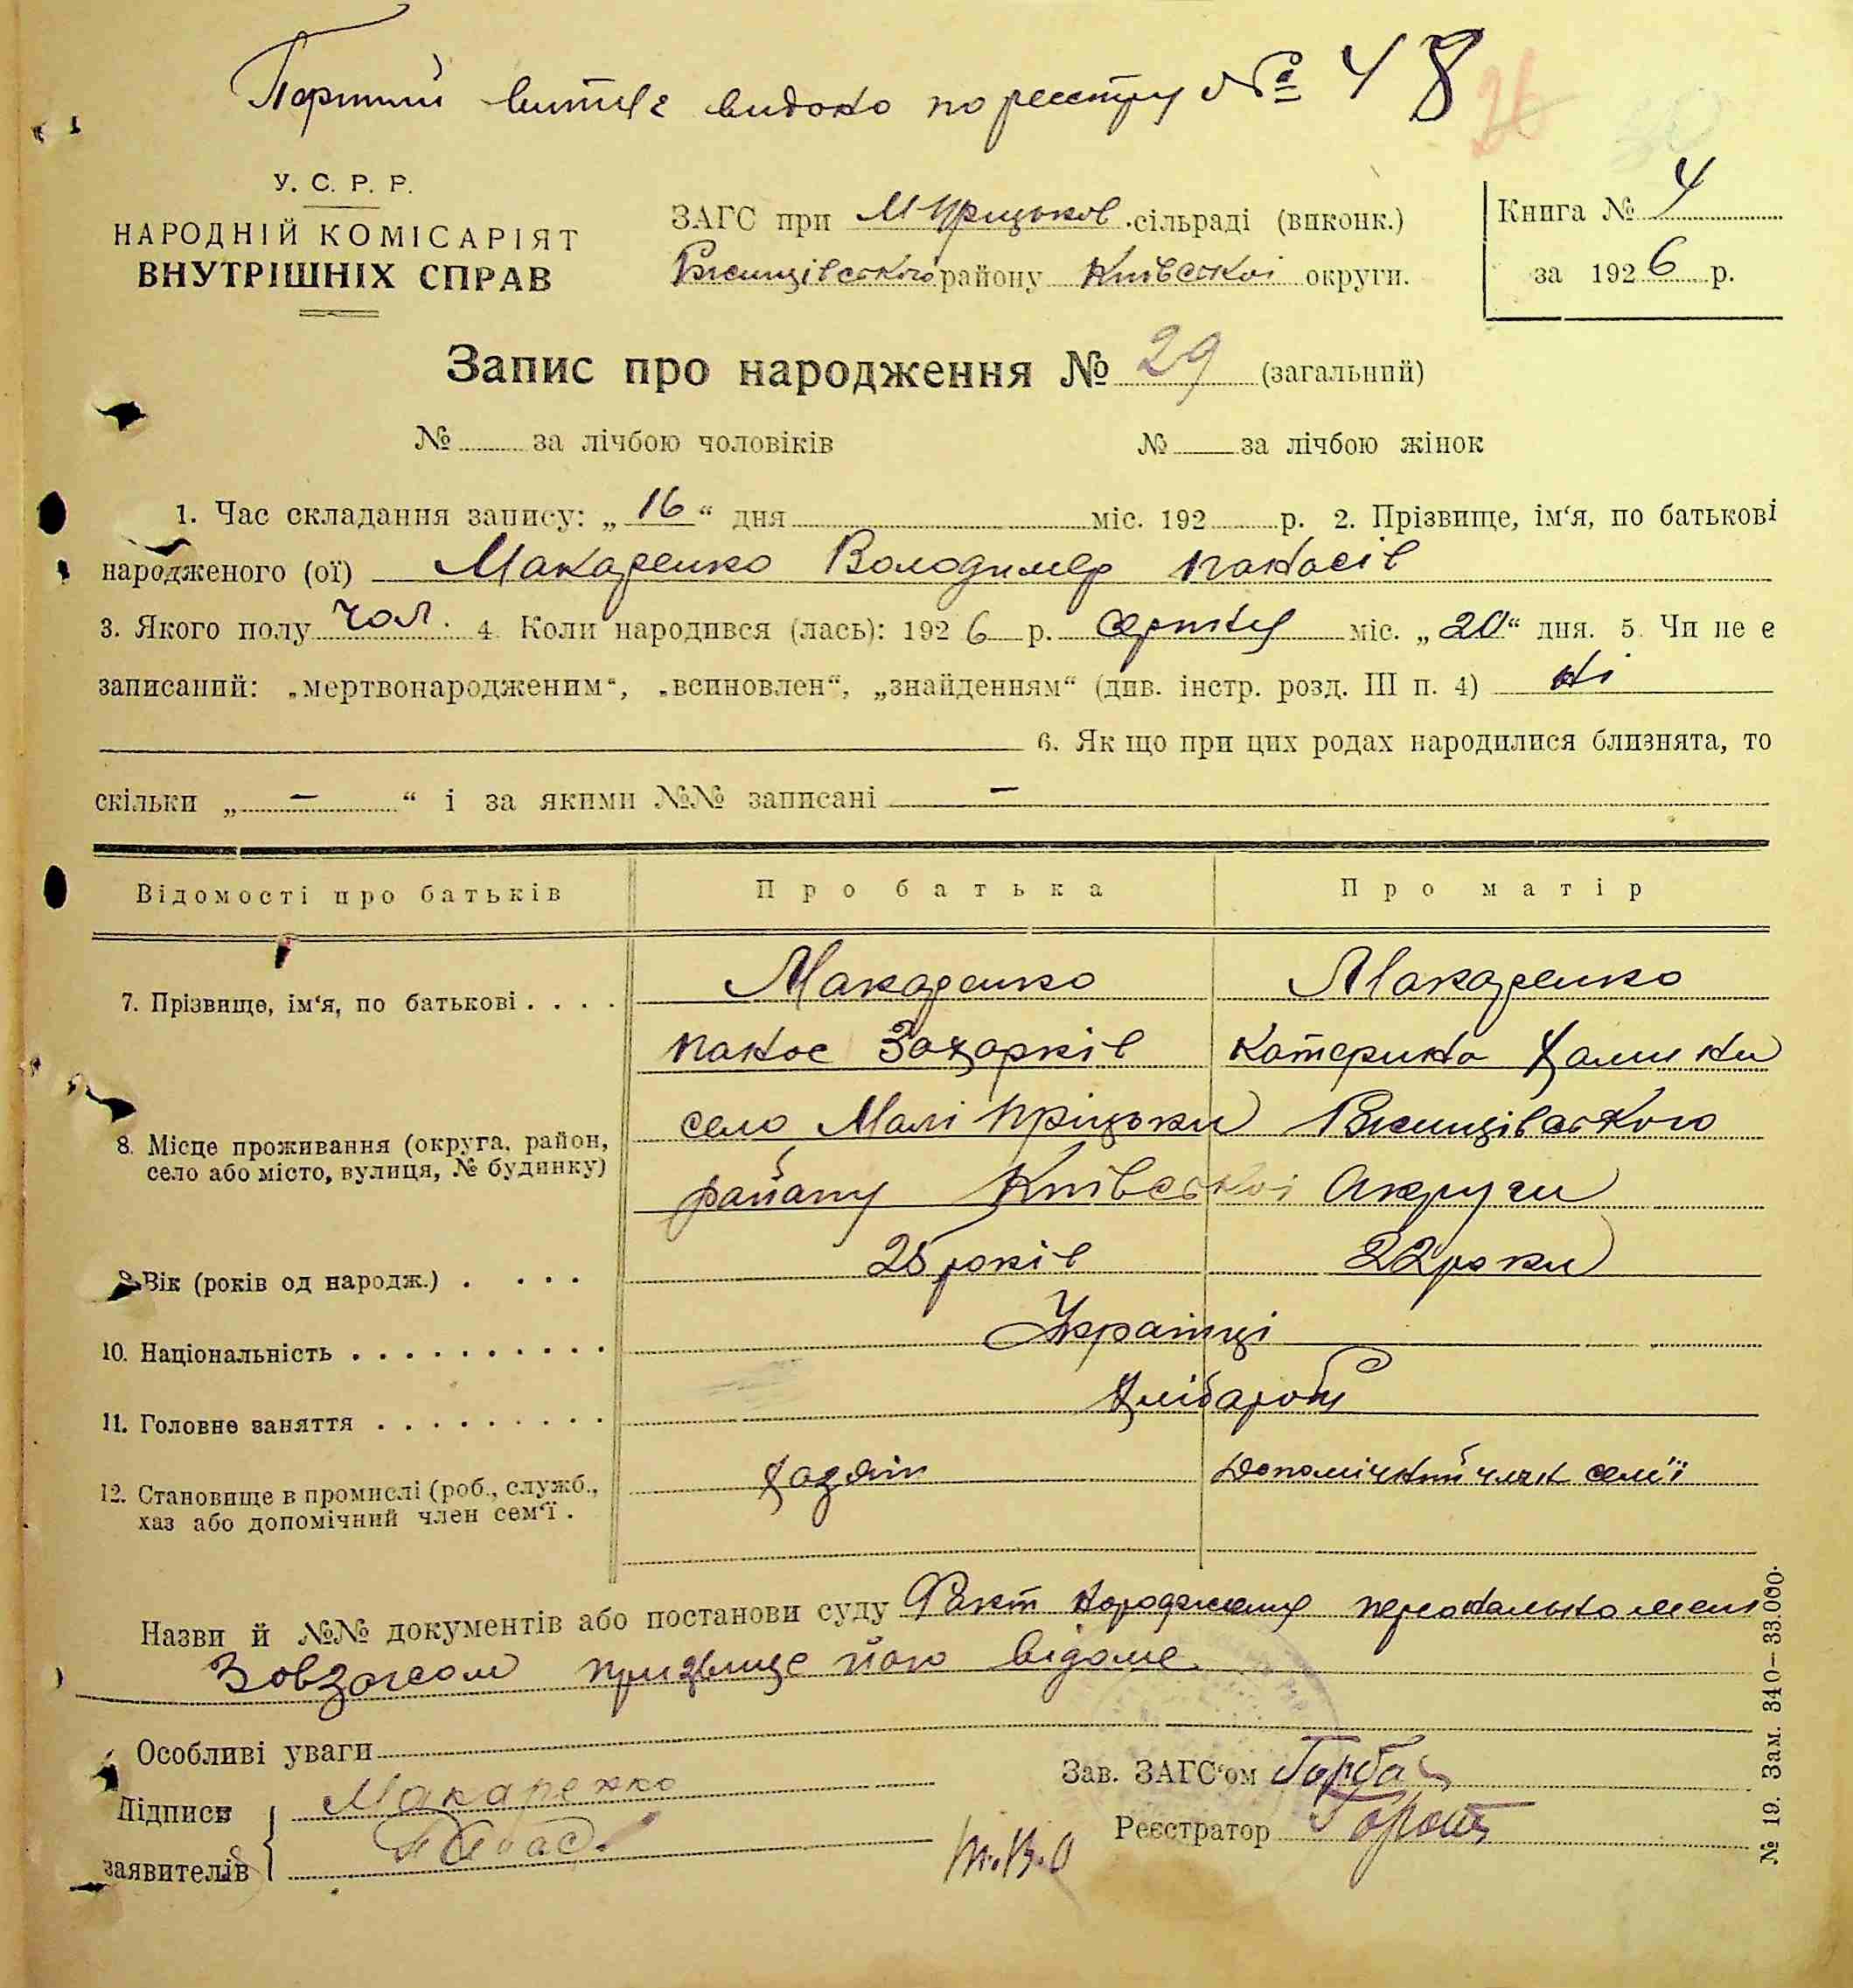 Перший витяг видано по реєстру № 48
26
У. С. Р. Р.
НАРОДНІЙ КОМІСАРІЯТ
ВНУТРІШНІХ СПРАВ
ЗАГС при М Прицьков. сільраді (виконк.)
Ржищівського району Київської округи.
Книга № 4
за 1926 р.
Запис про народження № 29 (загальний)
№ за лічбою чоловіків № за лічбою жінок
1. Час складання запису: „16“ дня міс. 192 р. 2. Прізвище, ім‘я, по батькові
народженого (ої) Макаренко Володимер Панасів
3. Якого полу чол. 4. Коли народився (лась): 1926 р. серпня міс. „20“ дня. 5. Чи не є
записаний: „мертвонародженим“, „всиновлен“, „знайденням“ (див. інстр. розд. III п. 4) ні
6. Як що при цих родах народилися близнята, то
скільки „ – “ і за якими №№ записані –
Відомості про батьків Про батька Про матір
7. Прізвище, ім‘я, по батькові . . . . Макаренко Макаренко
Панас Захарків Катерина
8. Місце проживання (округа, район, село Малі Пріцьки Ржищівського
село або місто, вулиця, № будинку)
району Київської Округи
9. Вік (років од народж.) . . . . 25 років 22 роки
10. Національність . . . . . . . . . . Українці
11. Головне заняття . . . . . . . . . Хлібароби
12. Становище в промислі (роб., служб., хазяїн допомічний член сем'ї
хаз або допомічний член сем‘ї .
Назви й №№ документів або постанови суду Факт народження персонально мені
Завзагсом призвище його відоме.
Особливі уваги
Зав. ЗАГС‘ом Горбач
Підписи Макаренко
Панас
заявителів
Реєстратор
№ 19. Зам. 340–33.000.